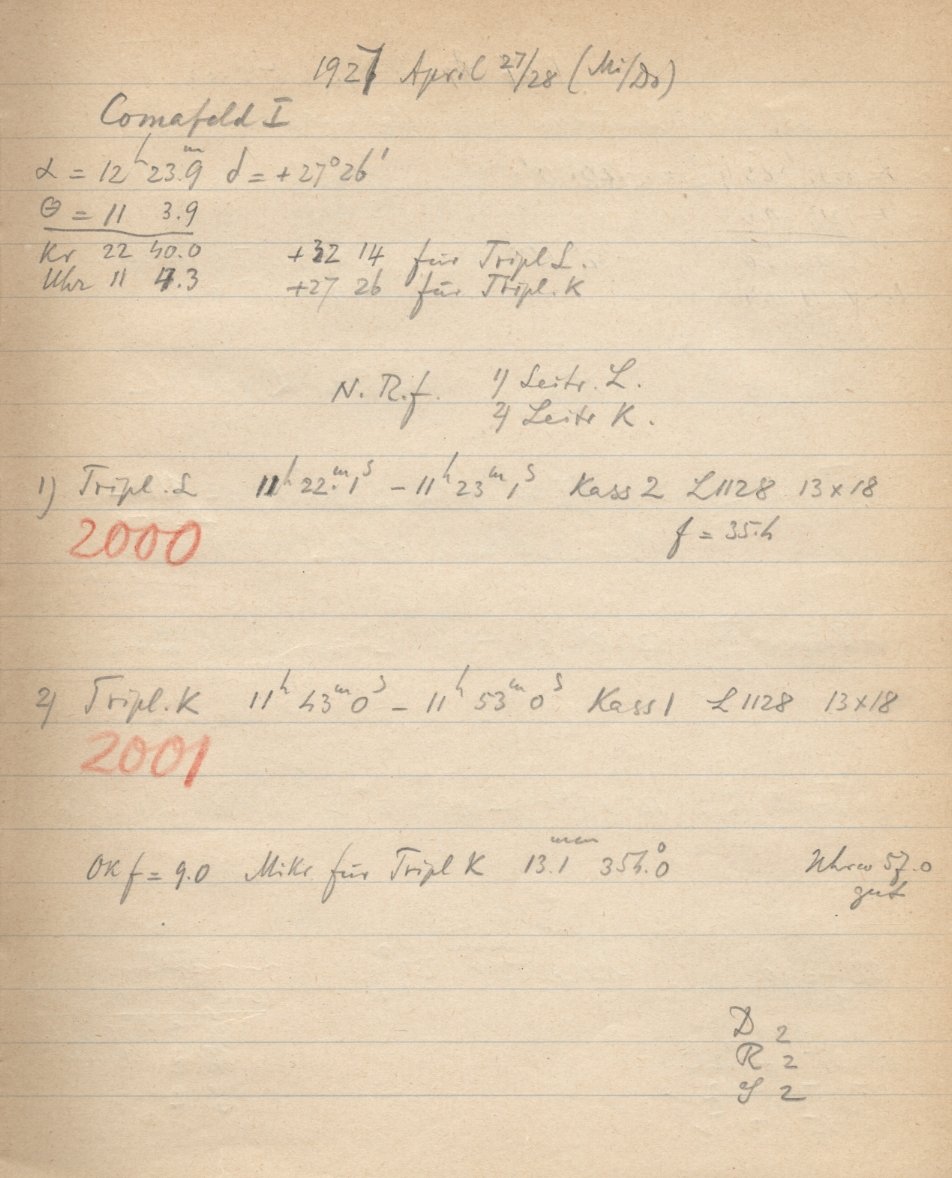 1927 April 27/28 (Mi/Do)
Comafeld I
α = 12h 23.9m d = +27° 26'
Θ = 11 3.9
Kr 22 40.0 +32 14 für Tripl L.
Uhr 11 4.3 +27 26 für Tripl. K
N. R.f. 1) Leitr. L.
2) Leitr K.
1) Tripl. L 11h 22m.1s – 11h 23m 1s Kass 2 L1128 13×18
2000 f = 35.4
2) Tripl. K 11h 43m 0s – 11h 53m 0s Kass 1 L1128 13×18
2001
OK f = 9.0 Mikr für Tripl K 13.1 354.0° 57.0
gut
D 2
R 2
S 2